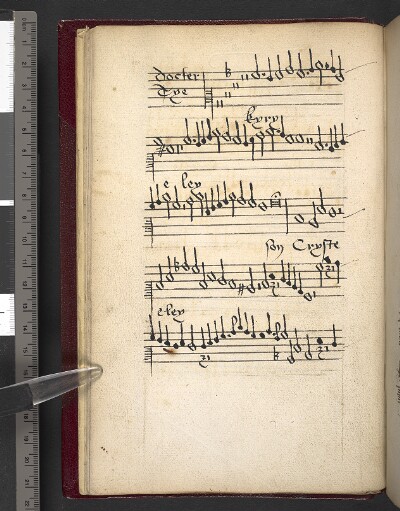 docter
Tye
kyry
e ley
son Cryste
eley